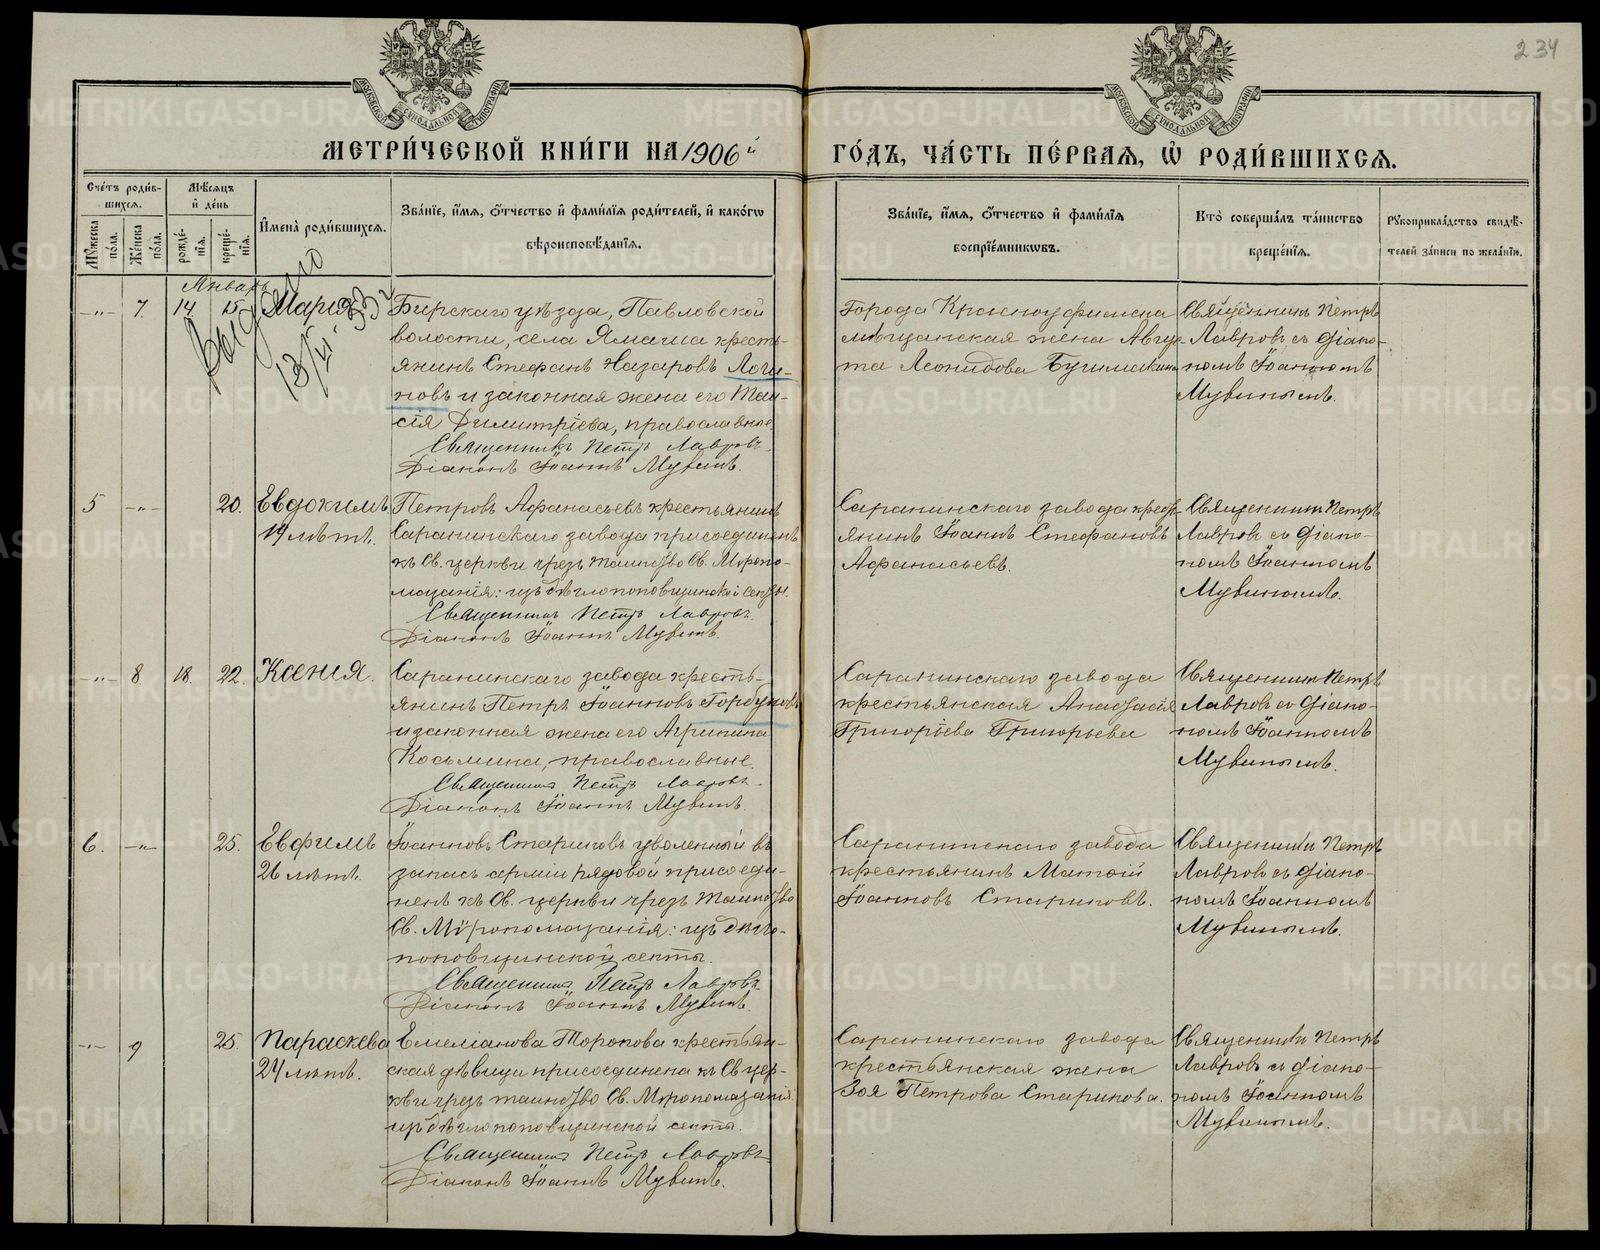 234
МОСКОВСКОЙ СѴНОДАЛЬНОЙ ТИПОГРАФІИ
МОСКОВСКОЙ СѴНОДАЛЬНОЙ ТИПОГРАФІИ
МЕТРИ́ЧЕСКОЙ КНИ́ГИ НА 1906й ГО́ДЪ, ЧА́СТЬ ПЕ́РВАЯ, Ѡ҆ РОДИ́ВШИХСЯ.
Сче́тъ роди́в-
шихся.
Мѣ́сяцъ
и҆ де́нь
Мꙋ́жеска по́ла.
Же́нска по́ла.
рожде́-
нїя.
креще́-
нїя.
И҆мена̀ роди́вшихся.
Зва́нїе, и҆́мя, ѻ҆́тчество и҆ фами́лїя роди́телей, и҆ како́гѡ
вѣроисповѣ́данїя.
Зва́нїе, и҆́мя, ѻ҆́тчество и҆ фами́лїя
воспрїе́мникѡвъ.
Кто̀ соверша́лъ та́инство
креще́нїя.
Рꙋкоприкла́дство свидѣ́-
телей за́писи по жела́нїю.
Январь
Выдано
13/VI-33г
-"- 7. 14 15 Мария
Бирскаго уѣзда, Павловской
волости, села Ямаша кресть-
янинъ Стефанъ Назаровъ Логи-
новъ и законная жена его Таи-
сія Димитріева, православные
Священникъ Петръ Лавровъ.
Діаконъ Іоаннъ Мувинъ.
Города Красноуфимска
мѣщанская жена Авгу-
та Леонидова Бушмакина
Священникъ Петръ
Лавровъ съ діако-
номъ Іоанномъ
Мувинымъ.
5 -"- 20. Евдокимъ
19 лѣтъ.
Петровъ Афанасьевъ крестьянинъ
Саранинскаго завода присоединенъ
къ Св. церкви чрезъ таинство Св. Мѵропо-
мазанія: изъ бѣглопоповщинской секты.
Священникъ Петръ Лавровъ.
Діаконъ Іоаннъ Мувинъ.
Саранинскаго завода крест-
янинъ Іоаннъ Стефановъ
Афанасьевъ.
Священникъ Петръ
Лавровъ съ діако-
номъ Іоанномъ
Мувинымъ.
-"- 8. 18. 22. Ксенія.
Саранинскаго завода кресть-
янинъ Петръ Іоанновъ Горбуновъ
и законная жена его Агрипина
Косьмина, православные.
Священникъ Петръ Лавровъ.
Діаконъ Іоаннъ Мувинъ.
Саранинскаго завода
крестьянская Анастасія
Григорьева Григорьева
Священникъ Петръ
Лавровъ съ діако-
номъ Іоанномъ
Мувинымъ.
6. -"- 25. Евфимъ
26 лѣтъ.
Іоанновъ Стариковъ уволенный въ
запасъ арміи рядовой присоеди-
ненъ къ Св. церкви чрезъ таинство
Св. Мѵропомазанія: изъ бѣгло-
поповщинской секты.
Священникъ Петръ Лавровъ.
Діаконъ Іоаннъ Мувинъ.
Саранинскаго завода
крестьянинъ Матѳій
Іоанновъ Стариковъ.
Священникъ Петръ
Лавровъ съ діако-
номъ Іоанномъ
Мувинымъ.
-"- 9 25. Параскева
24 лѣтъ.
Емеліанова Торопова крестьян-
ская дѣвица присоединена къ Св. цер-
кви чрезъ таинство Св. Мѵропомазанія
изъ бѣглопоповщинской секты.
Священникъ Петръ Лавровъ.
Діаконъ Іоаннъ Мувинъ.
Саранинскаго завода
крестьянская жена
Зоя Петрова Старикова.
Священникъ Петръ
Лавровъ съ діако-
номъ Іоанномъ
Мувинымъ.
METRIKI.GASO-URAL.RU